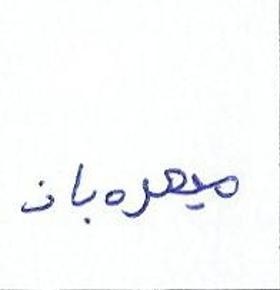 میهرەبان